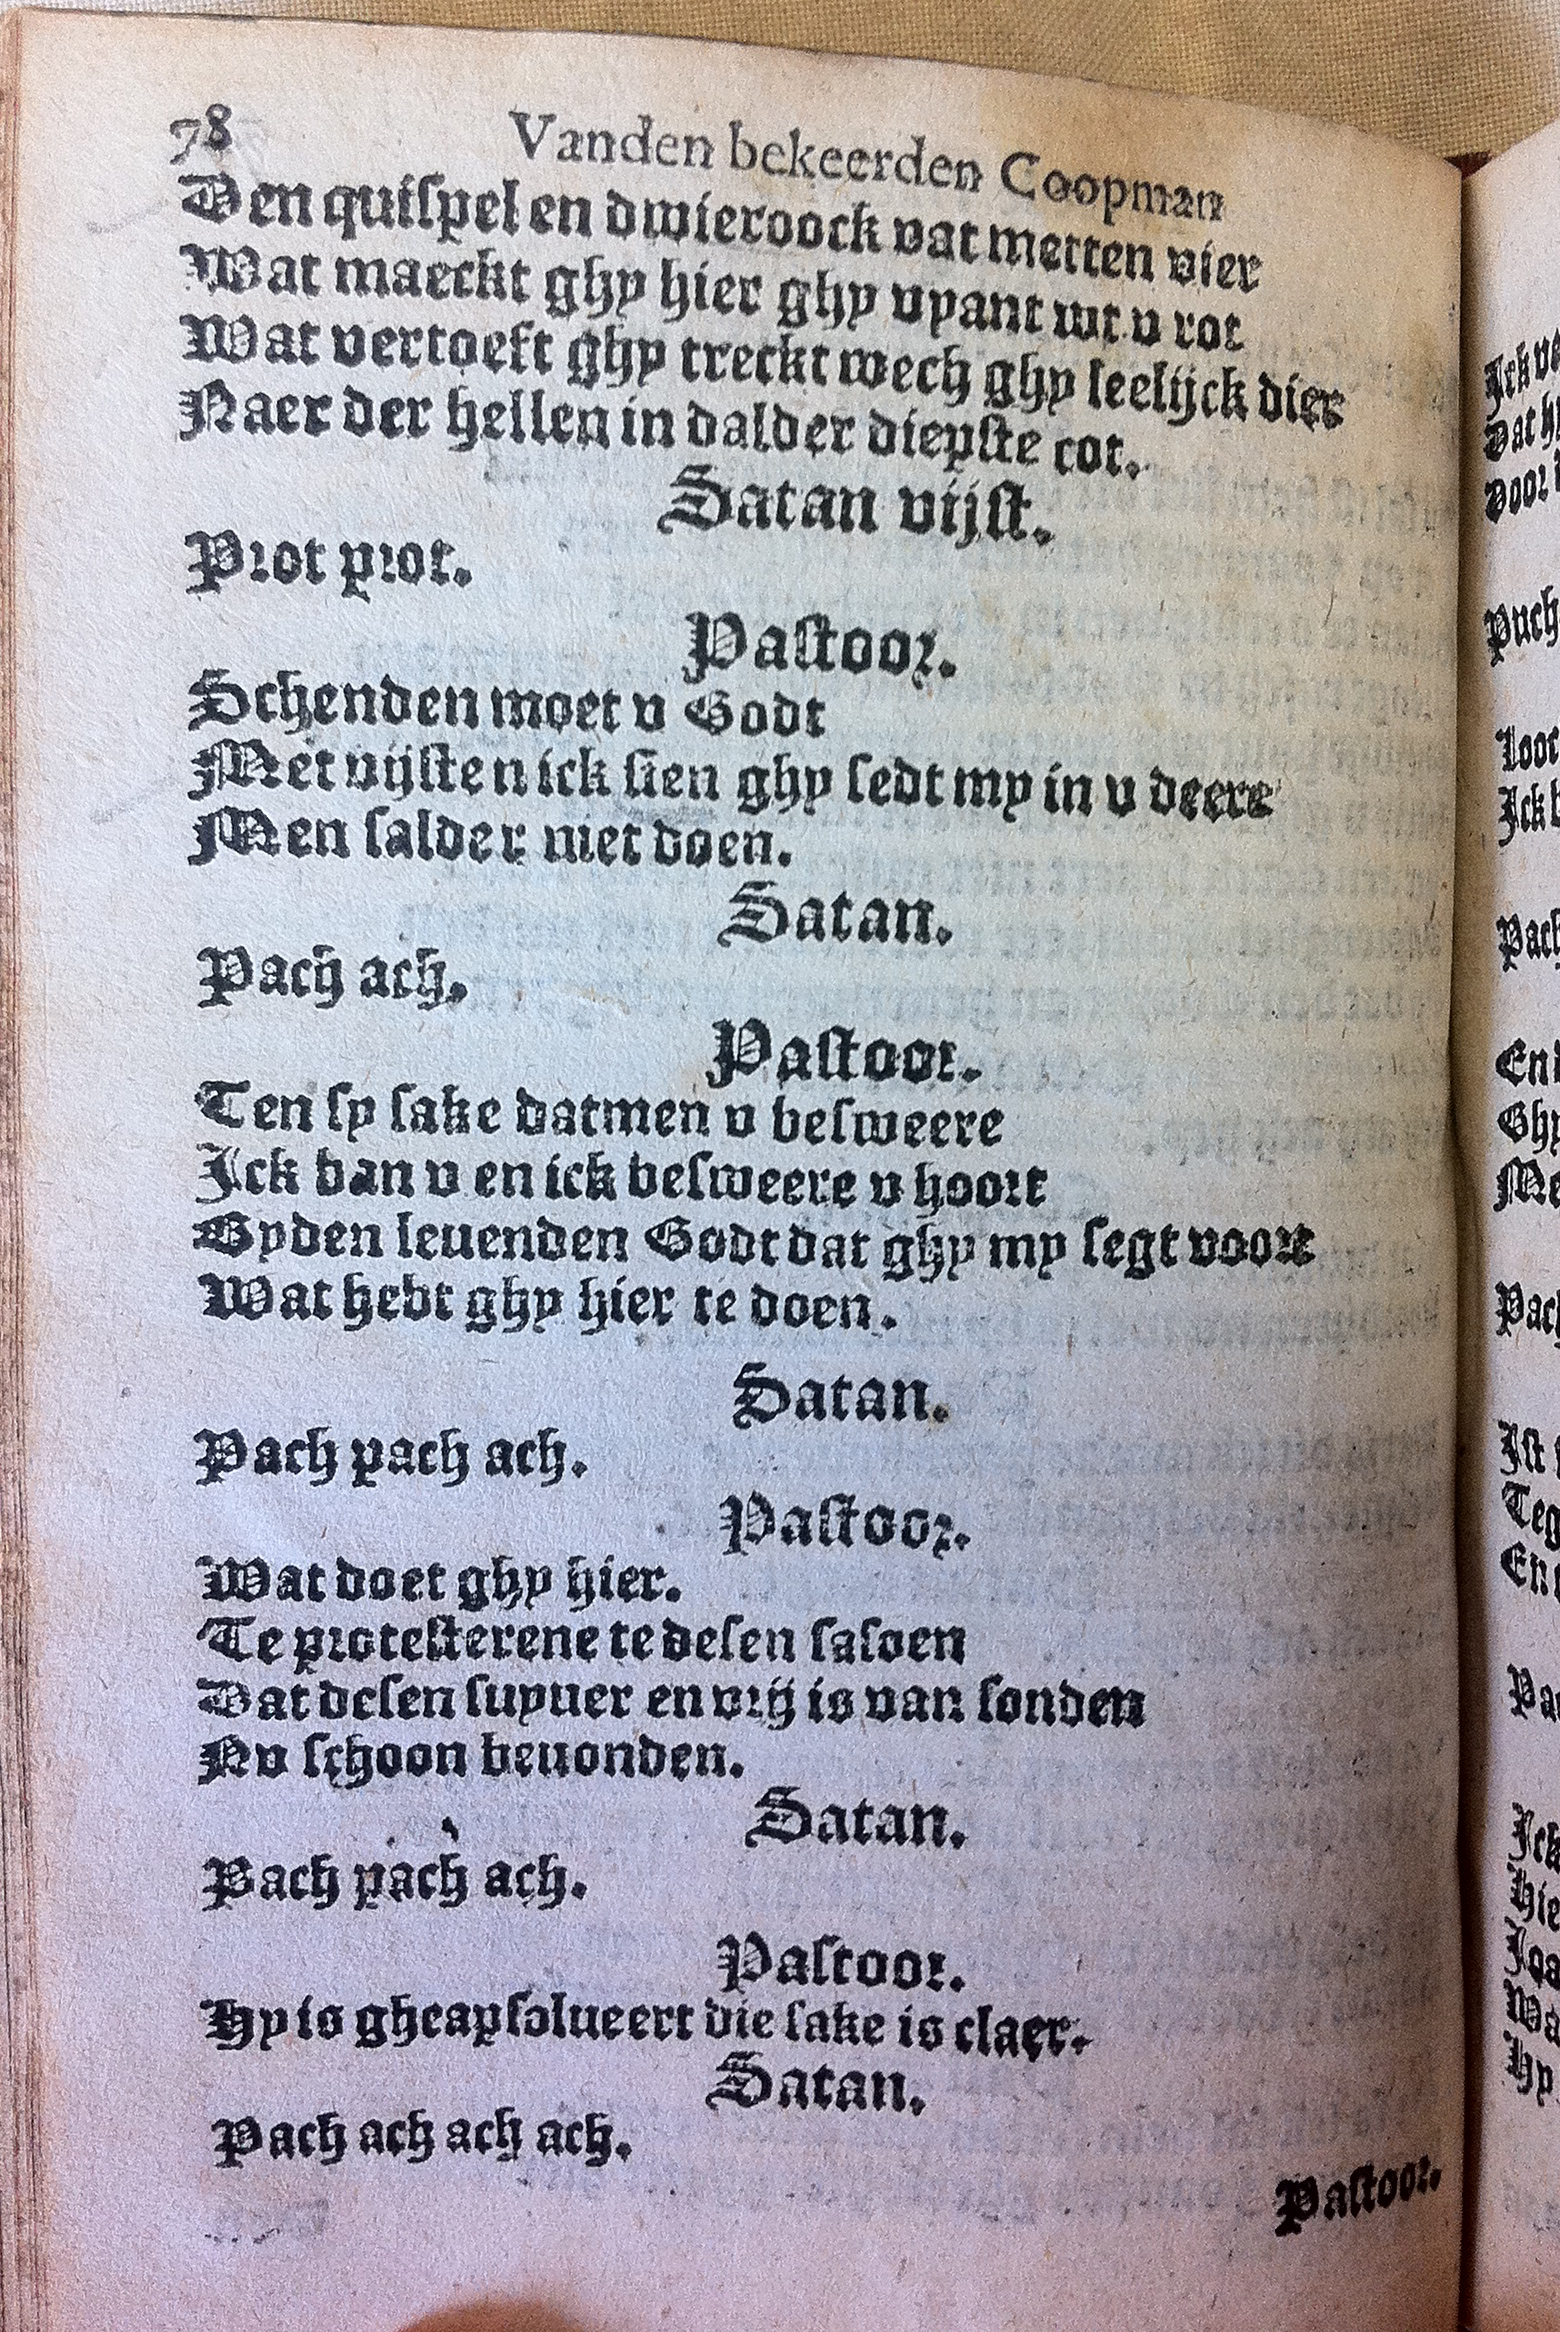 78 Vanden bekeerden Coopman
Den quispel en dwieroock vat metten vier
Wat maeckt ghy hier ghy vyant wt v rot
Wat vertoeft ghy treckt wech ghy leelijck dier
Naer der hellen in dalder diepste cot.
Satan vijst.
Prot prot.
Pastoor.
Schenden moet v Godt
Met vijsten ick sien ghy sedt my in v deere
Men salder niet doen.
Satan.
Pach ach.
Pastoor.
Ten sy sake datmen v besweere
Ick ban v en ick besweere v hoort
Byden leuenden Godt dat ghy my segt voort
Wat hebt ghy hier te doen.
Satan.
Pach pach ach.
Pastoor.
Wat doet ghy hier.
Te protesterene te desen sasoen
Dat desen supuer en vrij is van sonden
Nv schoon beuonden.
Satan.
Pach pach ach.
Pastoor.
Hy is gheapsolueert die sake is claer.
Satan.
Pach ach ach ach.
Pastoor.